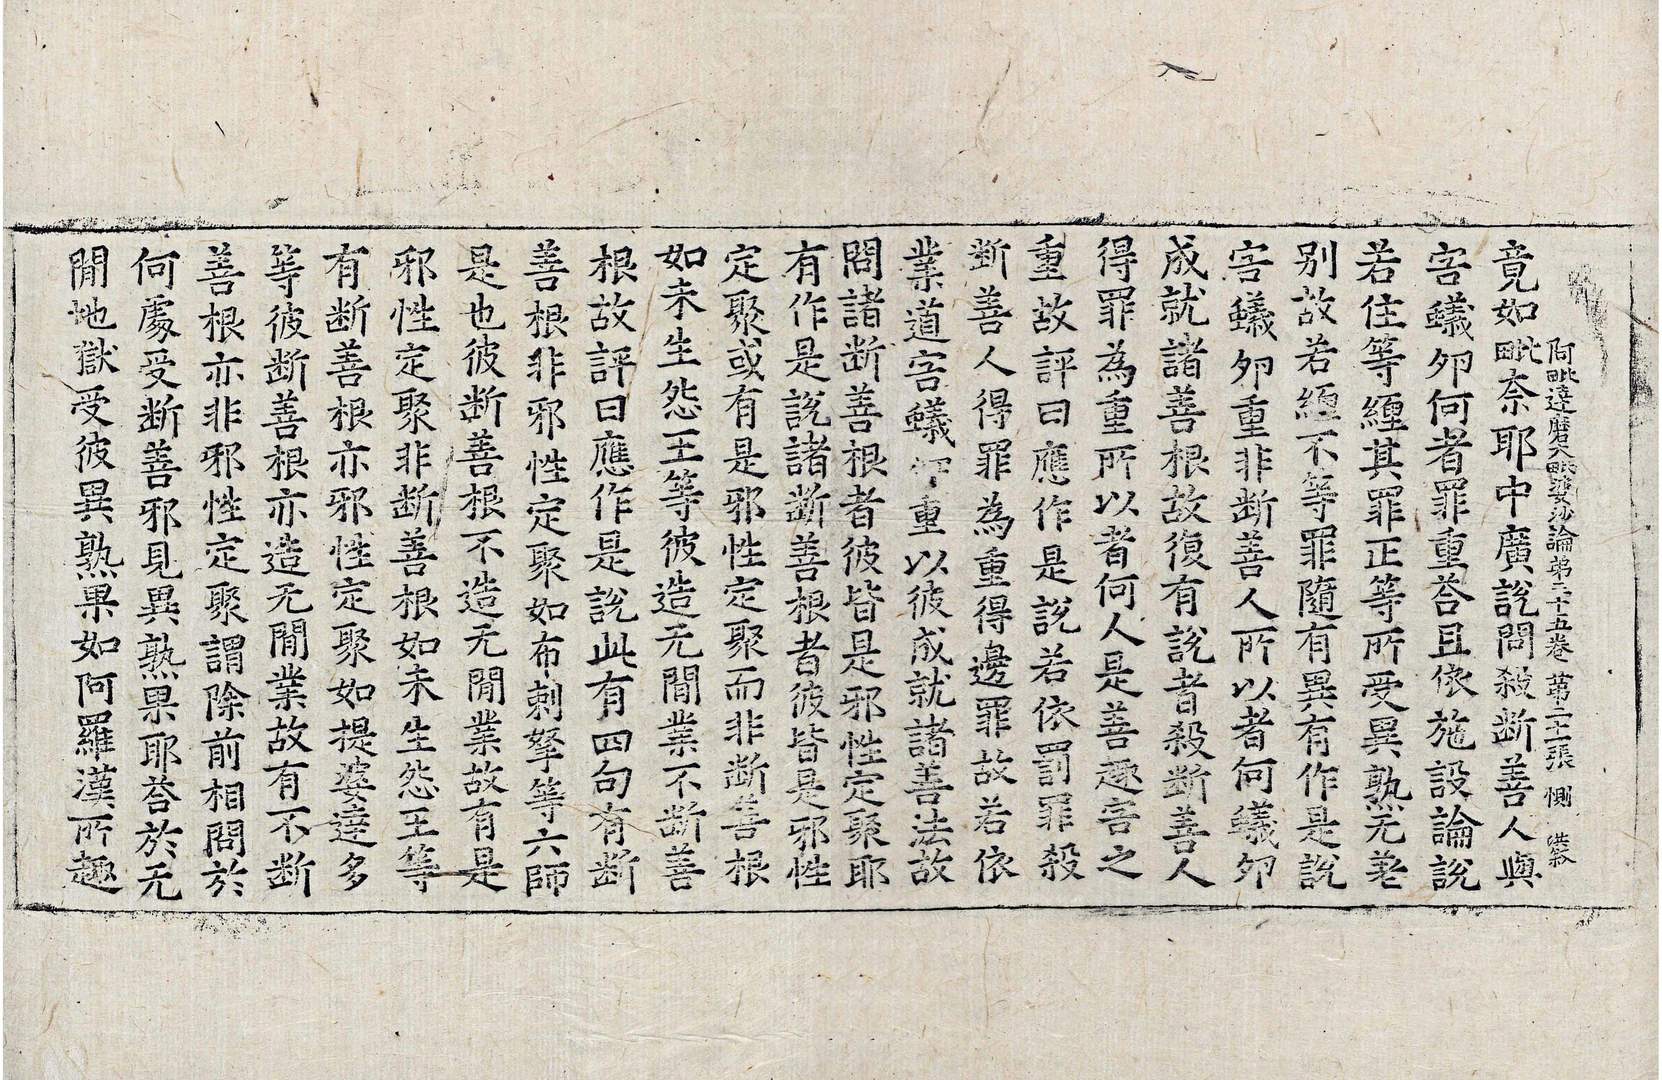 阿毗達磨大毗婆沙論第三十五卷 第二十一張 惻
竟如毗奈耶中廣說問殺斷善人與
害蟻卵何者罪重荅且依施設論說
若住等纏其罪正等所受異熟无差
別故若纏不等罪隨有異有作是說
害蟻卵重非斷善人所以者何蟻卵
成就諸善根故復有說者殺斷善人
得罪為重所以者何人是善趣害之
重故評曰應作是說若依罰罪殺
斷善人得罪為重得邊罪故若依
業道害蟻重以彼成就諸善法故
問諸斷善根者彼皆是邪性定聚耶
有作是說諸斷善根者彼皆是邪性
定聚或有是邪性定聚而非斷善根
如未生怨王等彼造无閒業不斷善
根故評曰應作是說此有四句有斷
善根非邪性定聚如布剌拏等六師
是也彼斷善根不造无閒業故有是
邪性定聚非斷善根如未生怨王等
有斷善根亦邪性定聚如提婆達多
等彼斷善根亦造无閒業故有不斷
善根亦非邪性定聚謂除前相問於
何處受斷善邪見異熟果耶荅於无
閒地獄受彼異熟果如阿羅漢所趣